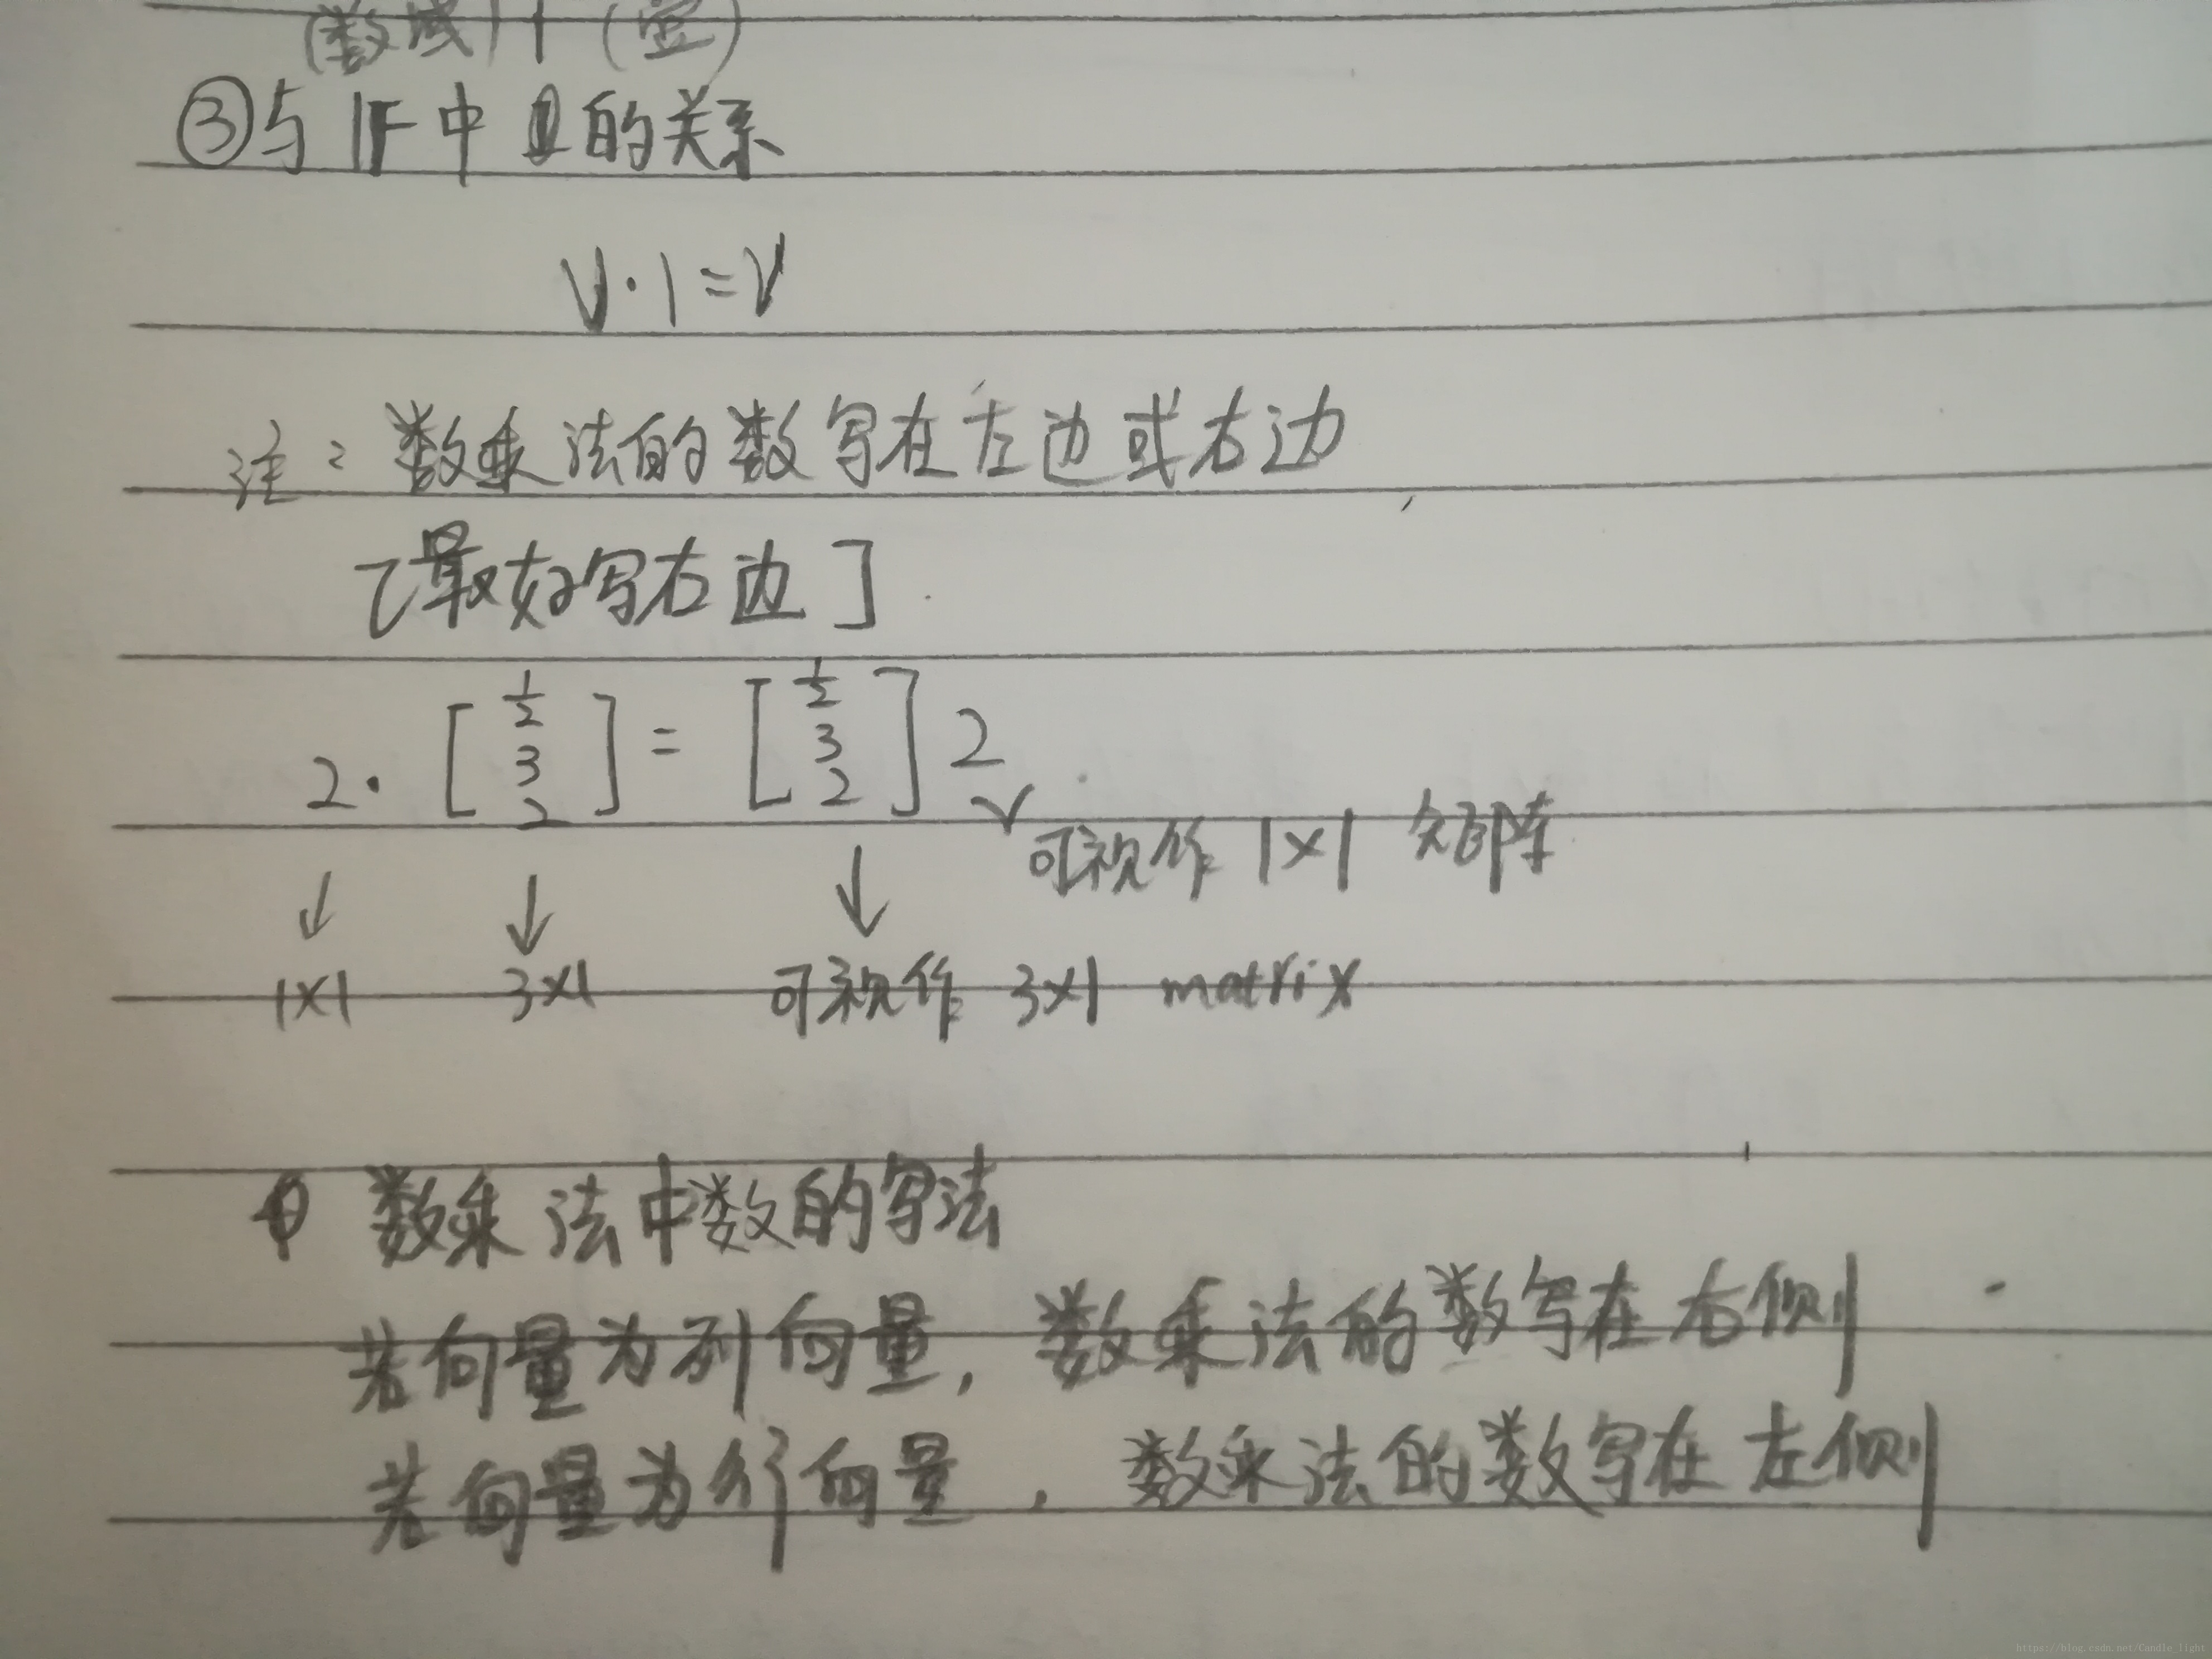 (数域) (空)
③与 F 中 1 的关系
V·1=V
注：数乘法的数写在左边或右边
[最好写右边]
2· [ 1/2 3 2 ] = [ 1/2 3 2 ] 2
可视作 1×1 矩阵
↓ ↓ ↓
1×1 3×1 可视作 3×1 matrix
数乘法中数的写法
若向量为列向量，数乘法的数写在右侧
若向量为行向量，数乘法的数写在左侧
https://blog.csdn.net/Candle_light